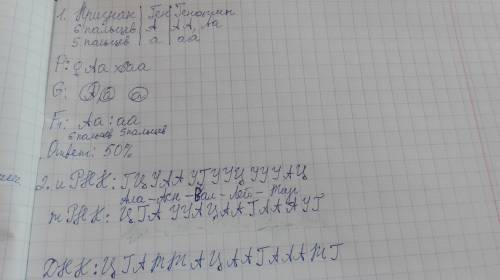 1. Признак | Ген | Генотип
6 пальцев | А | АА, Аа
5 пальцев | а | аа
Р: ♀ Аа х ♂ аа
G: А а а
F₁: Аа : аа
6 пальцев 5 пальцев
Ответ: 50%
2. и РНК: ГЦУААУГУУЦУУУАЦ
Ала - Асн - Вал - Лей - Тир
т РНК: ЦГАУУАЦААГАААУГ
ДНК: ЦГАТТАЦААГАААТГ